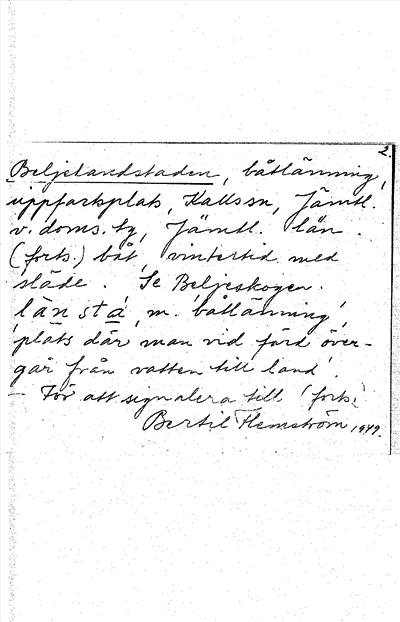 2.
Beljelandstaden, båtlänning,
uppfartsplats, Kallssn, Jämtl.
v. doms. tg, Jämtl. län.
(forts.) båt, vintertid med
släde. Se Beljeskogen.
länsta, m. 'båtlänning',
'plats där man vid färd över-
går från vatten till land'.
- För att signalera till (forts.)
Bertil Flemström 1979.